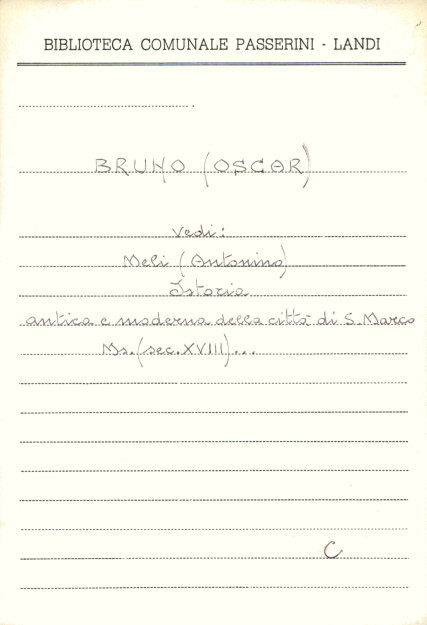 BIBLIOTECA COMUNALE PASSERINI - LANDI
BRUNO (OSCAR)
Vedi:
Meli (Antonino)
Istoria
antica e moderna della città di S. Marco
Ms. (sec. XVIII)...
C